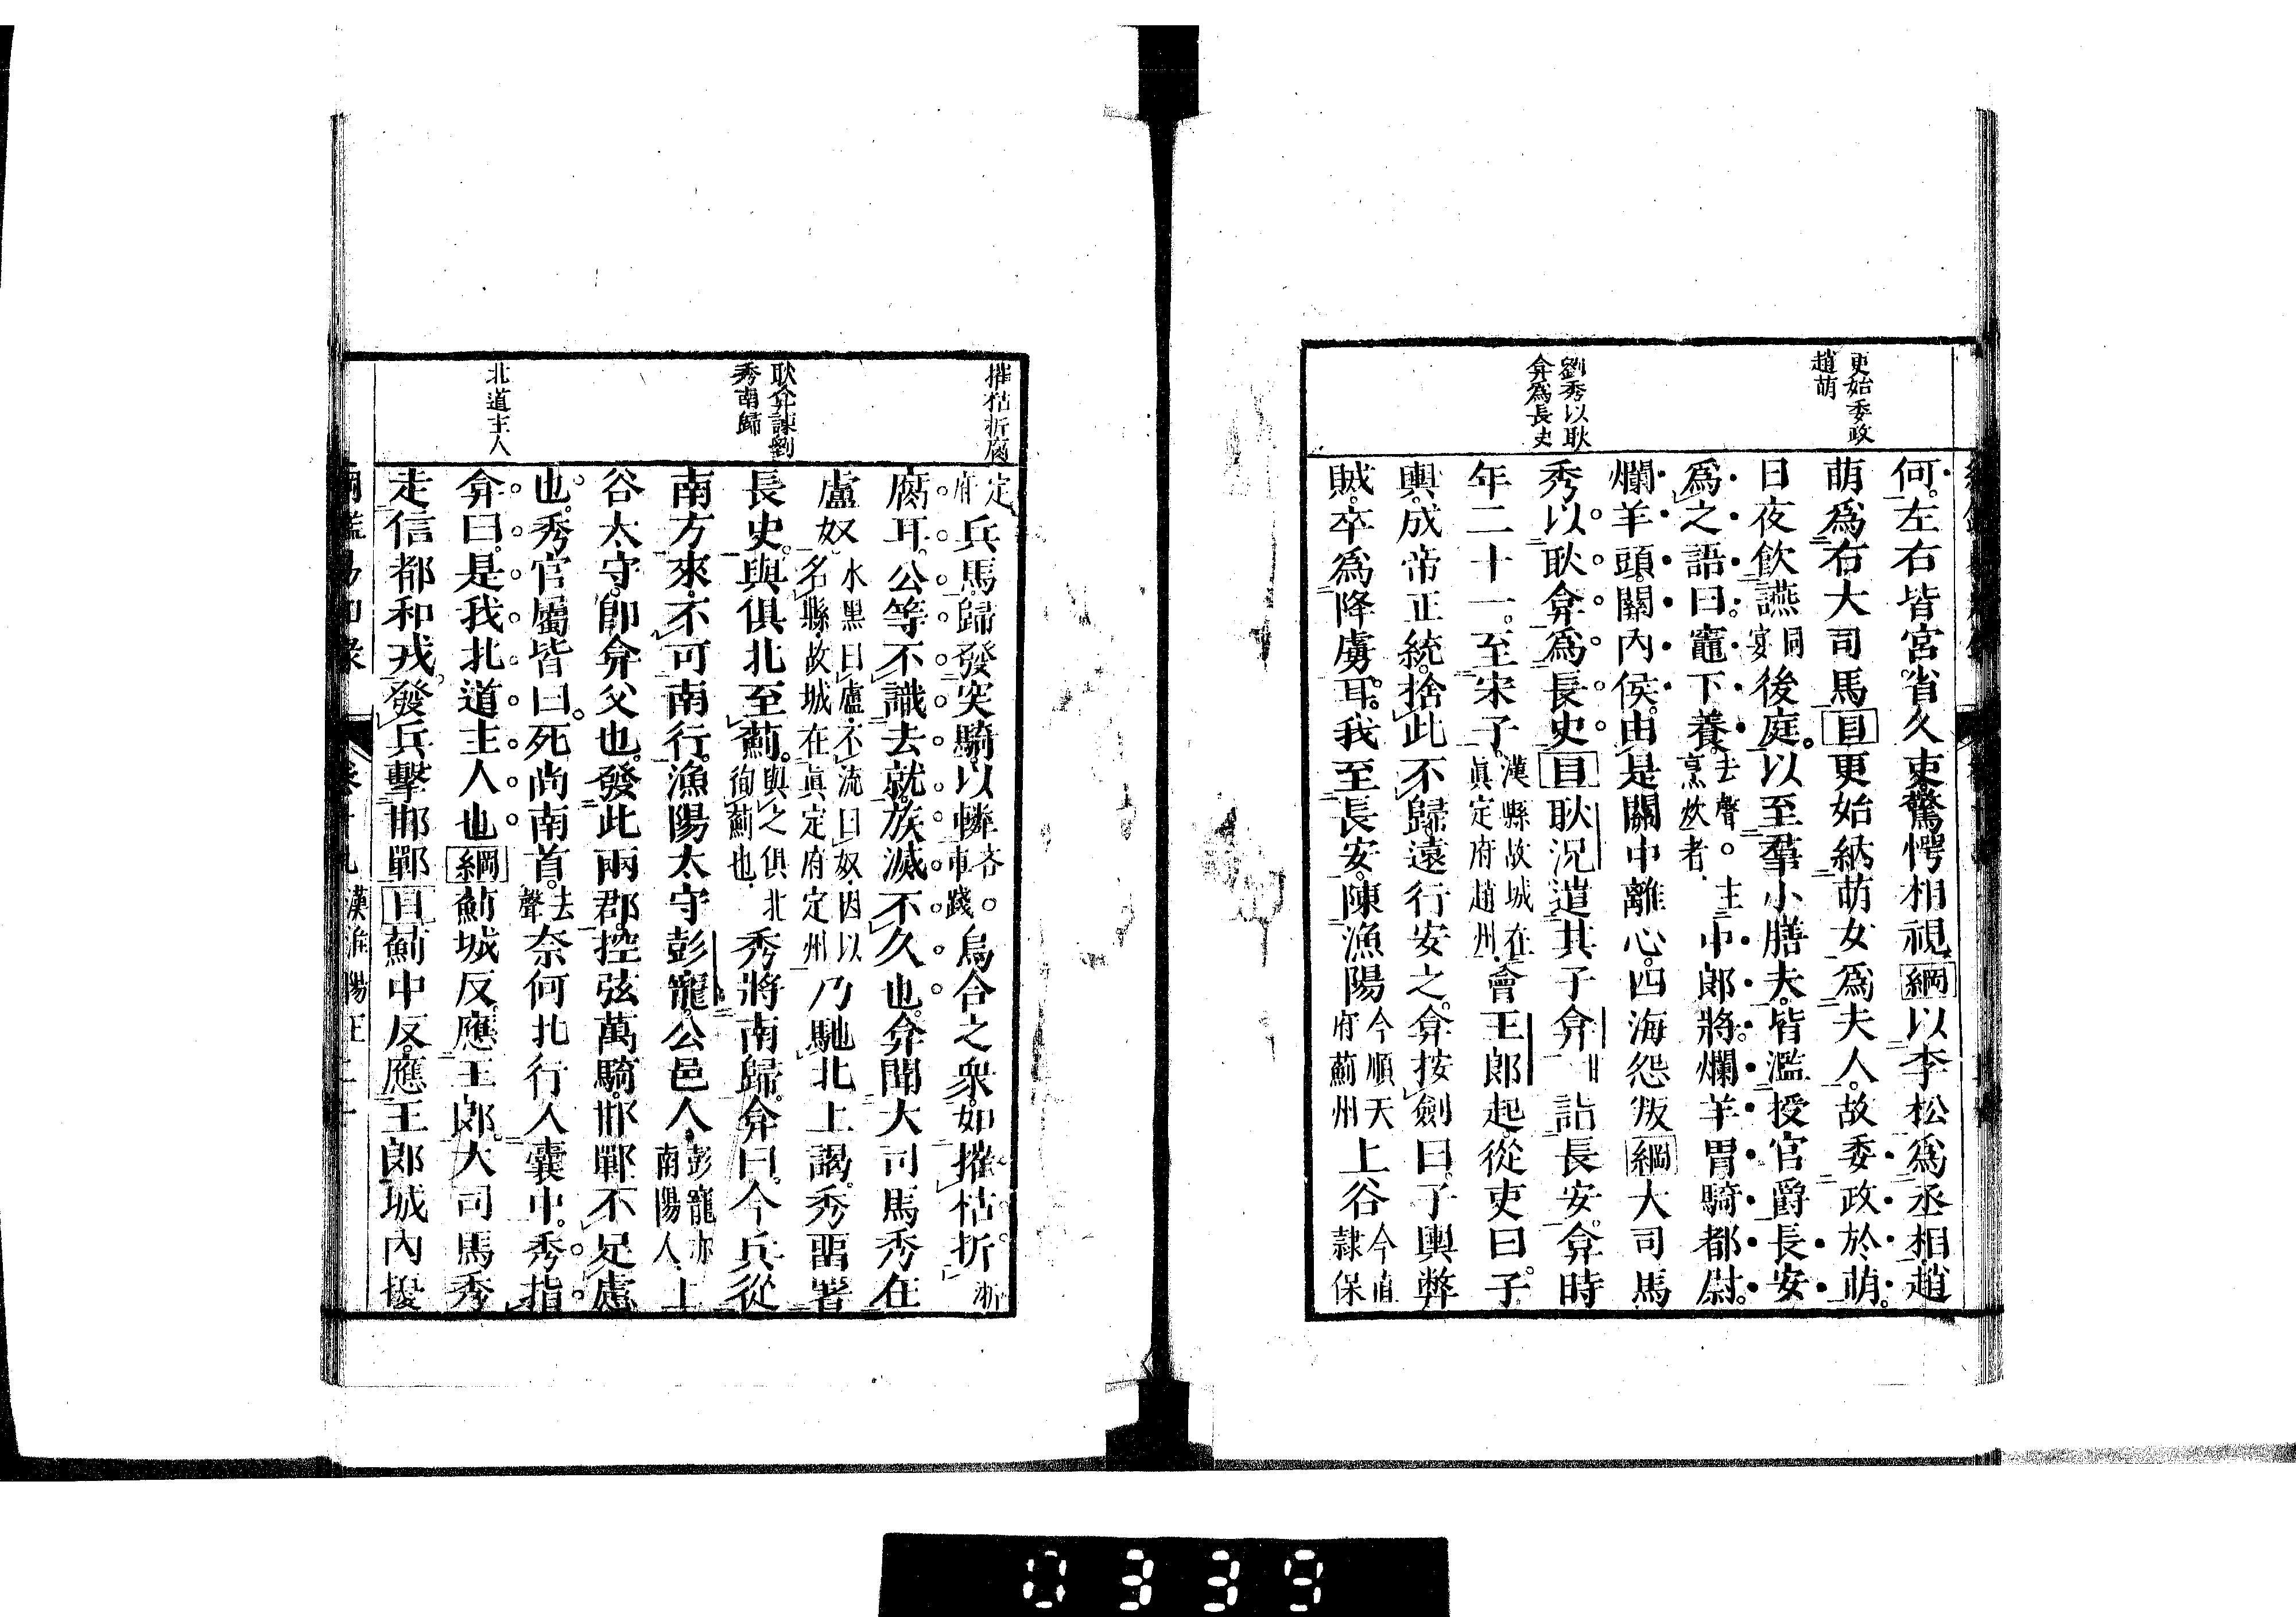 更始委政
趙萌
劉秀以耿
弇爲長史
何左右皆宮省久吏驚愕相視綱以李松爲丞相趙
萌爲右大司馬目更始納萌女爲夫人故委政於萌
日夜飲讌同宴後庭以至羣小膳夫皆濫授官爵長安
爲之語曰竈下養去聲。主烹炊者中郎將爛羊胃騎都尉
爛羊頭關內侯由是關中離心四海怨叛綱大司馬
秀以耿弇爲長史目耿況遣其子弇甘詣長安弇時
年二十一至宋子漢縣故城在眞定府趙州會王郎起從吏曰子
輿成帝正統捨此不歸遠行安之弇按劍曰子輿弊
賊卒爲降虜耳我至長安陳漁陽今順天府薊州上谷今直隷保
摧枯折腐
耿弇諫劉
秀南歸
北道主人
定府兵馬歸發突騎以轔吝車踐。烏合之衆如摧枯折淅
腐耳公等不識去就族滅不久也弇聞大司馬秀在
盧奴水黑曰盧不流曰奴因以名縣故城在眞定府定州乃馳北上謁秀畱署
長史與俱北至薊與之俱北徇薊也秀將南歸弇曰今兵從
南方來不可南行漁陽太守彭寵公邑人彭寵亦南陽人上
谷太守卽弇父也發此兩郡控弦萬騎邯鄲不足慮
也秀官屬皆曰死尚南首去聲奈何北行入囊中秀指
弇曰是我北道主人也綱薊城反應王郎大司馬秀
走信都和戎發兵擊邯鄲目薊中反應王郎城內擾
卷十九漢淮陽王二十
0339